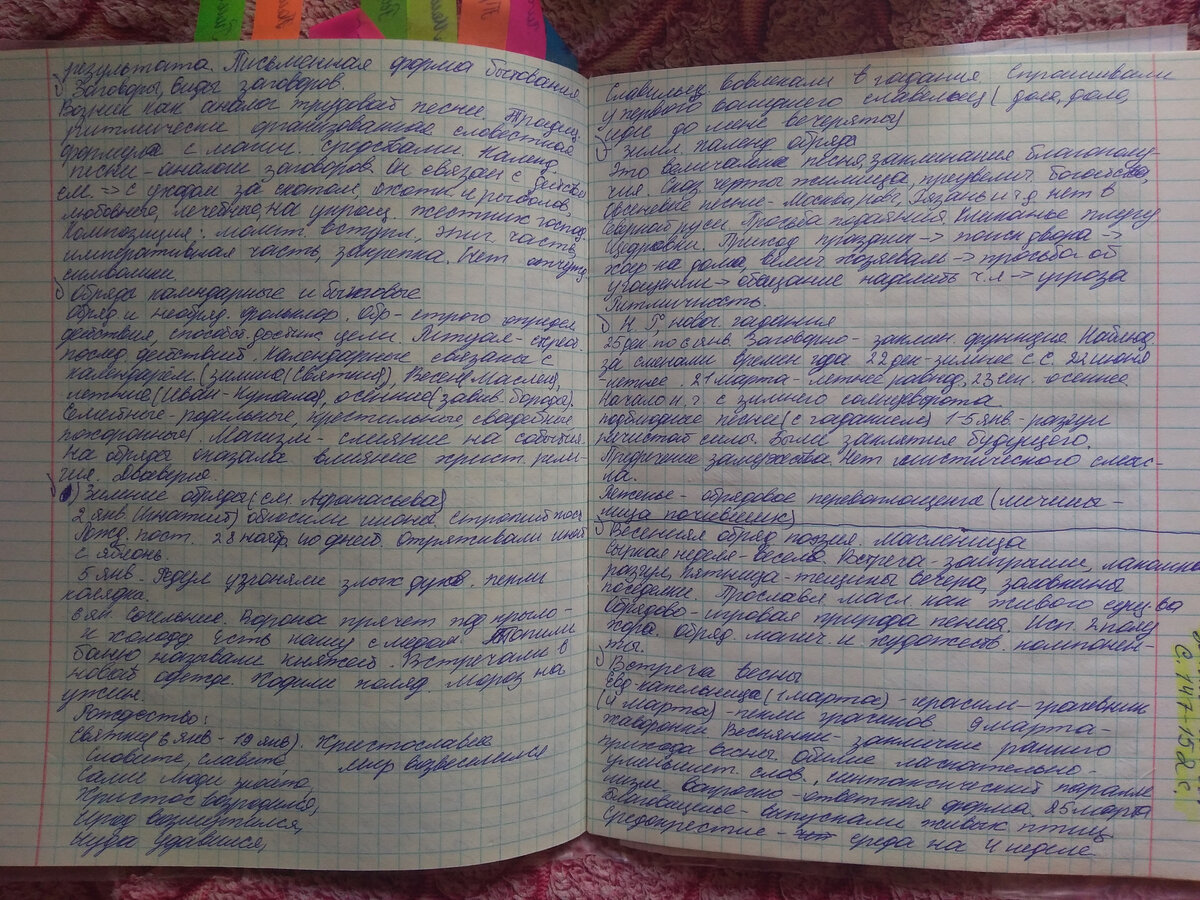 результата. Письменная форма бытования.
Заговоры, виды заговоров.
Возник как аналог трудовой песне.
Ритмически организованная словестная
формула с магич. средствами. Календ.
песни-аналоги заговоров. Он связан с действ
см. => с уходом за скотом, охотн. и рыболов,
любовнего, лечебные, на укрощ. жестких господ
Композиция: молит. вступл, эпич. часть,
императивная часть, закрепка. Нет
символики
Обряды календарные и бытовые
Обряд и необряд. фольклор. Обр - строго определ
действия, способ достиж. цели. Ритуал -
послед. действий. Календарные связаны с
календарём (зимние (святки), Весен (маслен),
летние (Иван-Купала), осенние (завив. борода).
Семейные - родильные, крестильные, свадебные
похоронные. Магизм - слияние на события.
На обряды оказала влияние христ. рели-
гия. Двоеверие.
Зимние обряды (см Афанасьева)
2 янв (Игнатий) обносили икона. Строгий пост
Рожд. пост. 28 нояб. 40 дней. Отряхивали иней
с яблонь.
5 янв. Федул узгоняли злых духов. пекли
колядка.
6 ян. Сочельник. Ворона прячет под крыло-
к холоду. Есть кашу с медом. Топили
баню называли княжей. Встречали в
новой одежде. Ходили коляд. Мороз на
ужин.
Рождество:
Святки (6 янв - 19 янв). Христославие
Словите, славите мир возвеселился
Сами люди знаете,
Христос возродился,
Ирод возмутился,
Иуда удавился,
Славильец вовлекали в гадания Спрашивали
у первого вошедшего славельец (доля, доля,
иди до мене вечеряты)
Зимн. календ обряда
Это величальная песня, заклинания благополу-
чия. Сказ. черты жилища, преувелич. богатства,
Овсеневые песни - Москва, Рязань и т.д, нет в
северной руси. Просьба подаяния. Кликанье плугу
Щедровки. Приход праздник -> поиск двора ->
хар-ка дома, велич. хозяеваль -> просьба об
угощении -> обещание наделить ч.л -> угроза
Ритмичность.
Н. Г, новог. гадания
25 дек по 6 янв. Заговорно-заклин. функцию Наблюд
за сменами времен года 22 дек - зимнее с с 22 июня
-летнее. 21 марта - летнее равнод, 23 сен. осеннее
Начало н. г. с зимнего солнцеворота.
подблюдные песни (с гаданием) 1-5 янв - разгул
нечистой силы. Были заклятия будущего.
Предречение замужества. Нет мистического смыс-
ла.
Ряженье - обрядовое перевоплощение (личины -
лица почивших)
Весенняя обряд поэзия. Масленица
Сырная неделя - весела. Встреча - заигрыши, лакомка
разгул, пятница - тещины вечера, заловкины
поседелки. Прославл масл. как живого сущ-ва
Обрядово-игровая природа пения. Исп.
хора. обряд. магич и художеств. компонен-
ты.
Встреча весны
Евд-капельница (1 марта) - герасим-грачевник
(4 марта) - пекли грачиков 9 марта -
жаворонки Веснянки - закличие раннего
прихода весны. Обилие ласкательно-
уменьшит. слов, синтаксический паралле
лизм. вопросно-ответная форма. 25 марта
Благовещенье - выпускали живых птиц
Средокрестие - среда на 4 неделе
с. 147-152